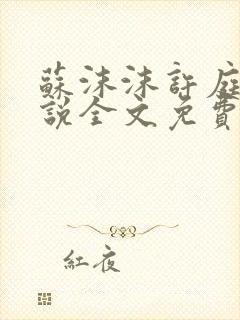 蘇沫沫許庭
說全文免費
紅夜